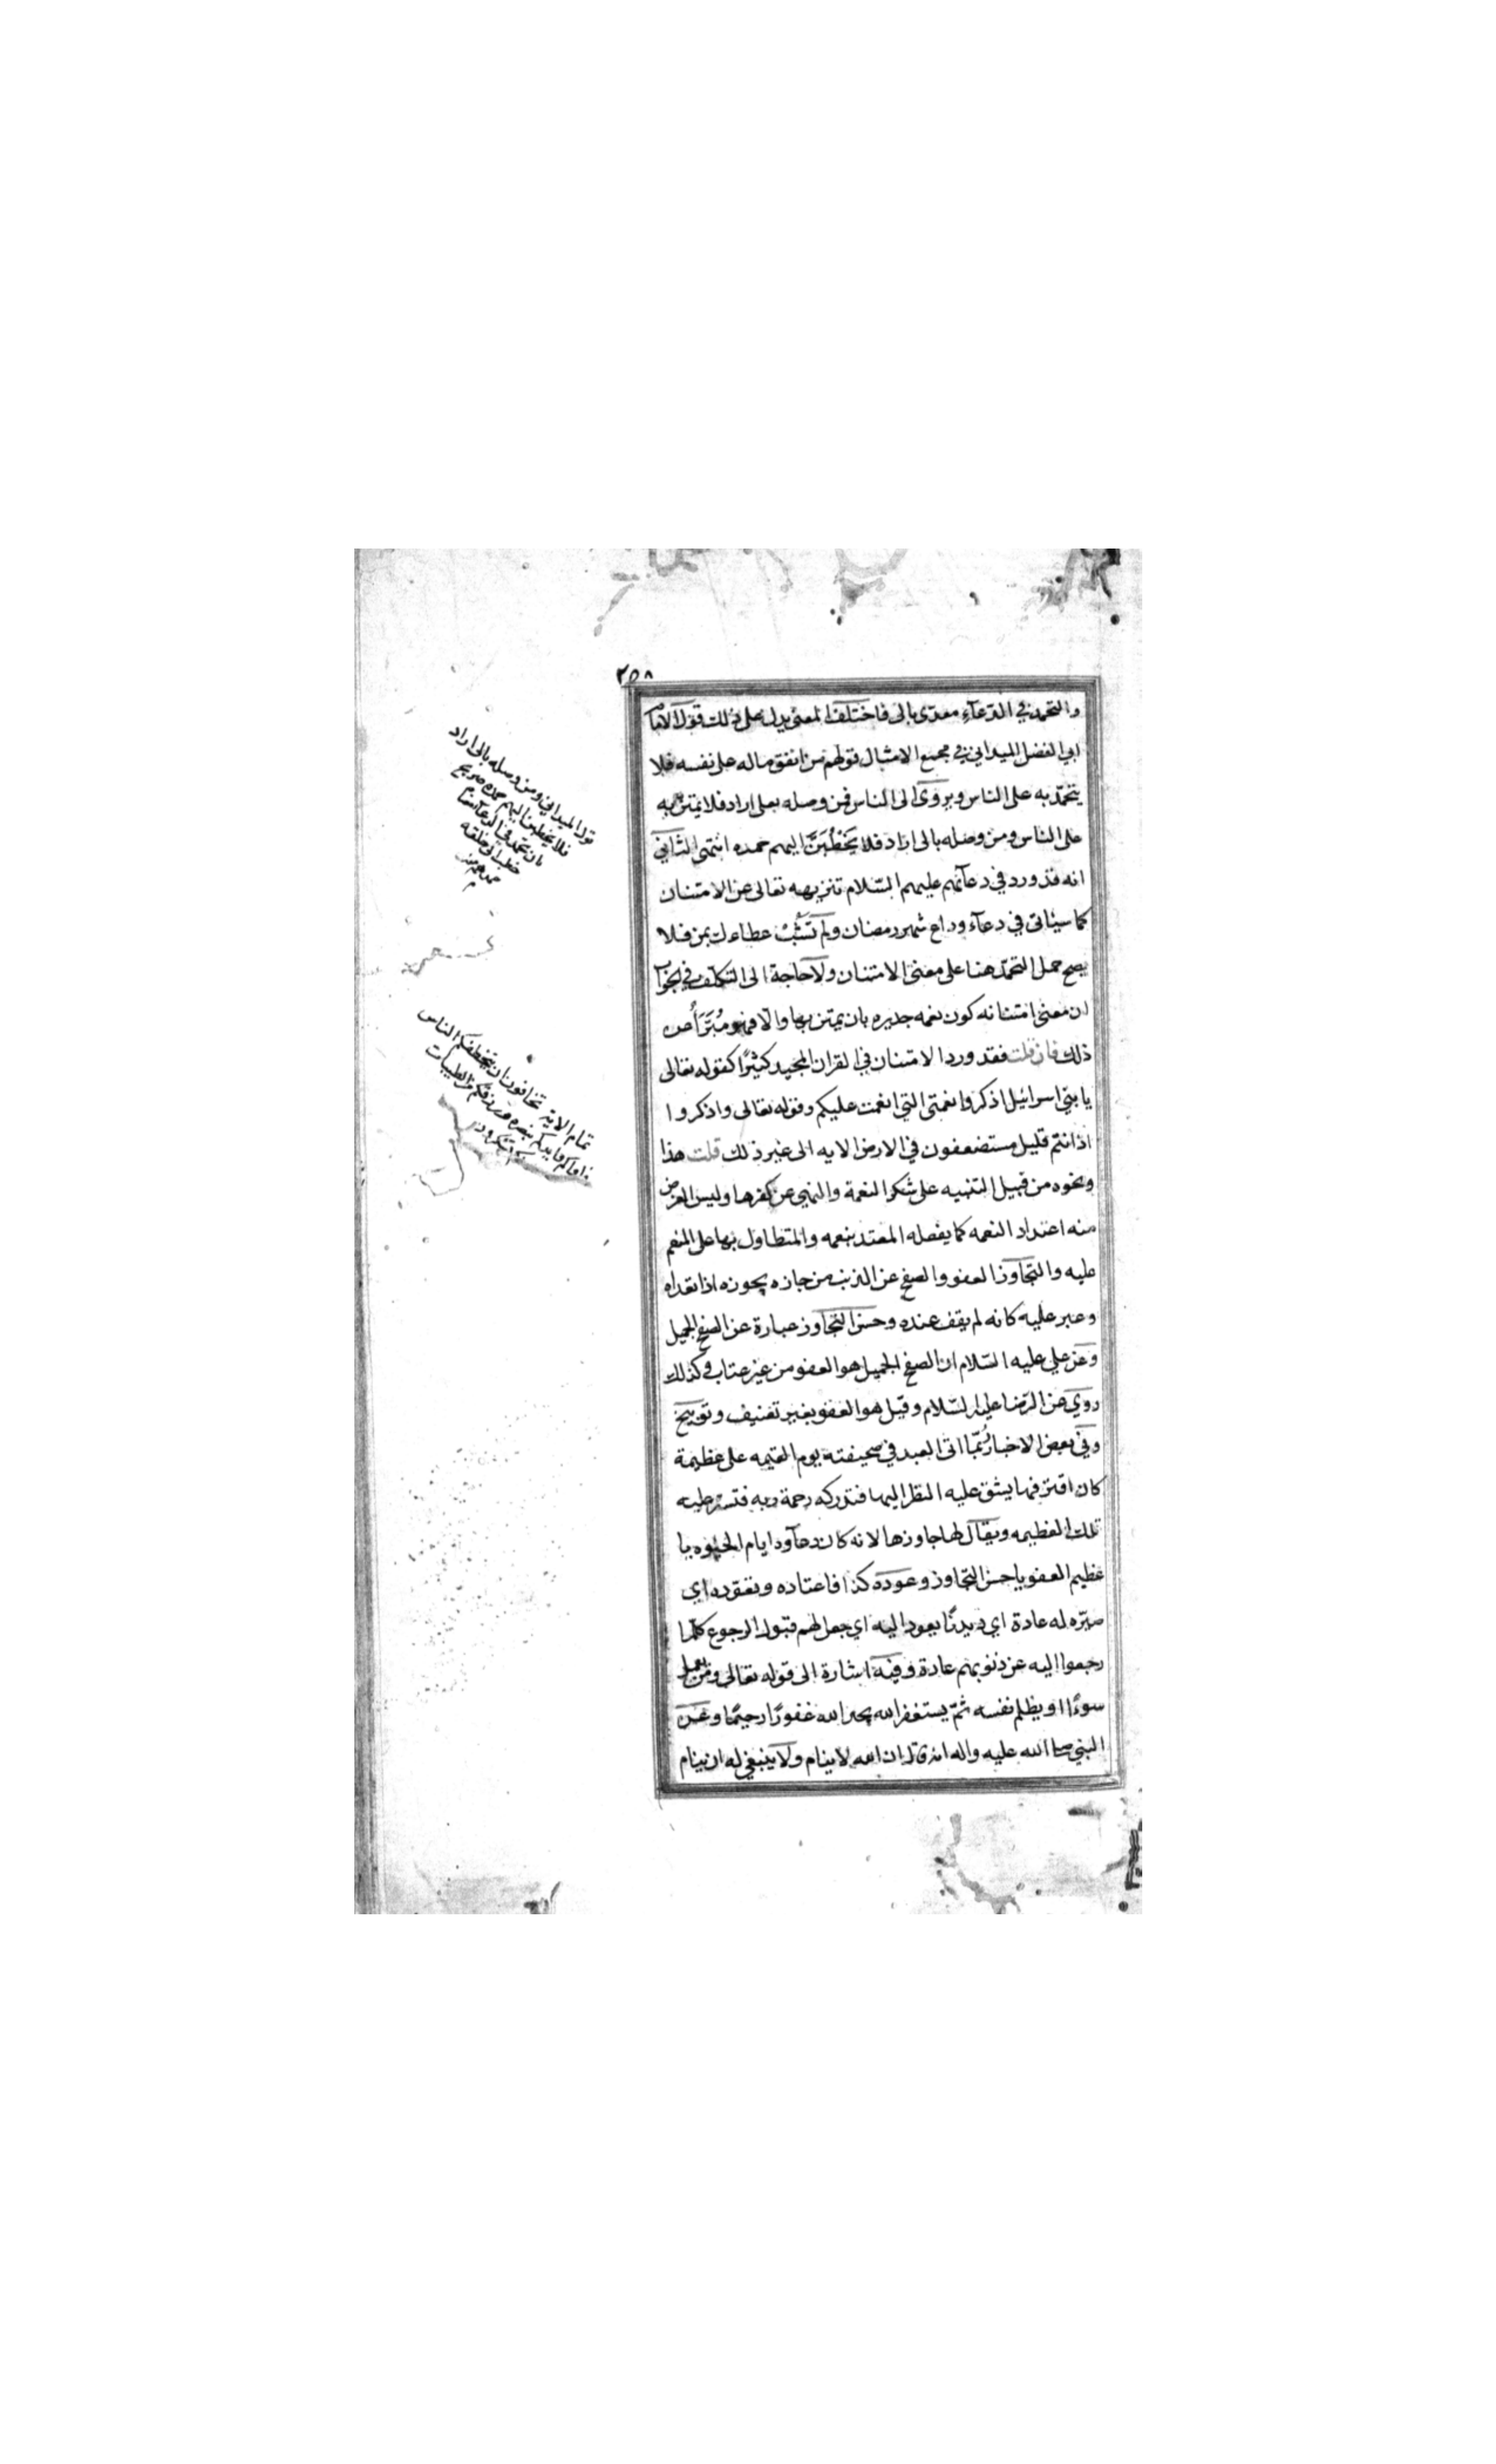 ٢٥٨
والتحمد في الدعآء معدى بالى فاختلف المعنى يدل على ذلك قول الامام
ابي الفضل الميداني في مجمع الامثال قولهم من انفق ماله على نفسه فلا
يتحمد به على الناس ويروى الى الناس فمن وصله بعلى اراد فلا يمتن به
على الناس ومن وصله بالى اراد فلا يَخطُبَنَّ اليهم حمده انتهى الثاني
انه قد ورد في دعآئهم عليهم السّلام تنزيهه تعالى عن الامتنان
كما سياتى في دعآء وداع شهر رمضان ولم تَشُبْ عطاءك بمن فلا
يصح حمل التحمّد هنا على معنى الامتنان ولا حاجة الى التكلّف في الجواب
ان معنى امتنانه كون نعمه جديره بان يمتن بها والّا فهو مُبَرَّأ عن
ذلك فان قلت فقد ورد الامتنان في القران المجيد كثيرًا كقوله تعالى
يا بني اسرائيل اذكروا نعمتى التي انعمت عليكم وقوله تعالى واذكروا
اذ انتم قليل مستضعفون في الارض الايه الى غير ذلك قلت هذا
ونحوه من قبيل التنبيه على شكر النعمة والنهي عن كفرها وليس الغرض
منه اعتداد النعمه كما يفعله المعتد بنعمه والمتطاول بها على المنعم
عليه والتجاوز العفو والصفح عن الذنب من جازه يجوزه اذا تعداه
وعبر عليه كانه لم يقف عنده وحسن التجاوز عبارة عن الصفح الجميل
وعن علي عليه السّلام ان الصفح الجميل هو العفو من غير عتاب وكذلك
روي عن الرضا عليه السّلام وقيل هو العفو بغير تعنيف وتوبيخ
وفي بعض الاخبار رُبّما اتى العبد في صحيفته يوم القيمه على عظيمة
كان اقترفها يشق عليه النظر اليها فتدركه رحمة ربه فتستر عليه
تلك العظيمه ويقال لها جاوزها لانه كان دعآوه ايام الحيوه يا
عظيم العفو يا حسن التجاوز وعوده كذا فاعتاده وتعوده اي
صيّره له عادة اي ديدنًا يعود اليه اي جعل لهم قبول الرجوع كلّما
رجعوا اليه عن ذنوبهم عادة وفيه اشارة الى قوله تعالى ومن يعمل
سوءًا او يظلم نفسه ثمّ يستغفر الله يجد الله غفورًا رحيمًا وعن
النبي صلى الله عليه واله انه قال ان الله لا ينام ولا ينبغي له ان ينام
قول الميداني ومن وصله بالى اراد
فلا يخطبن اليهم حمده صريح
بان تحمد في الدعآء
خطب الى خلقه
حمدهم
تمام الاية تخافون ان يتخطفكم الناس
فاواكم وايدكم بنصره ورزقكم من الطيبات
لعلكم تشكرون